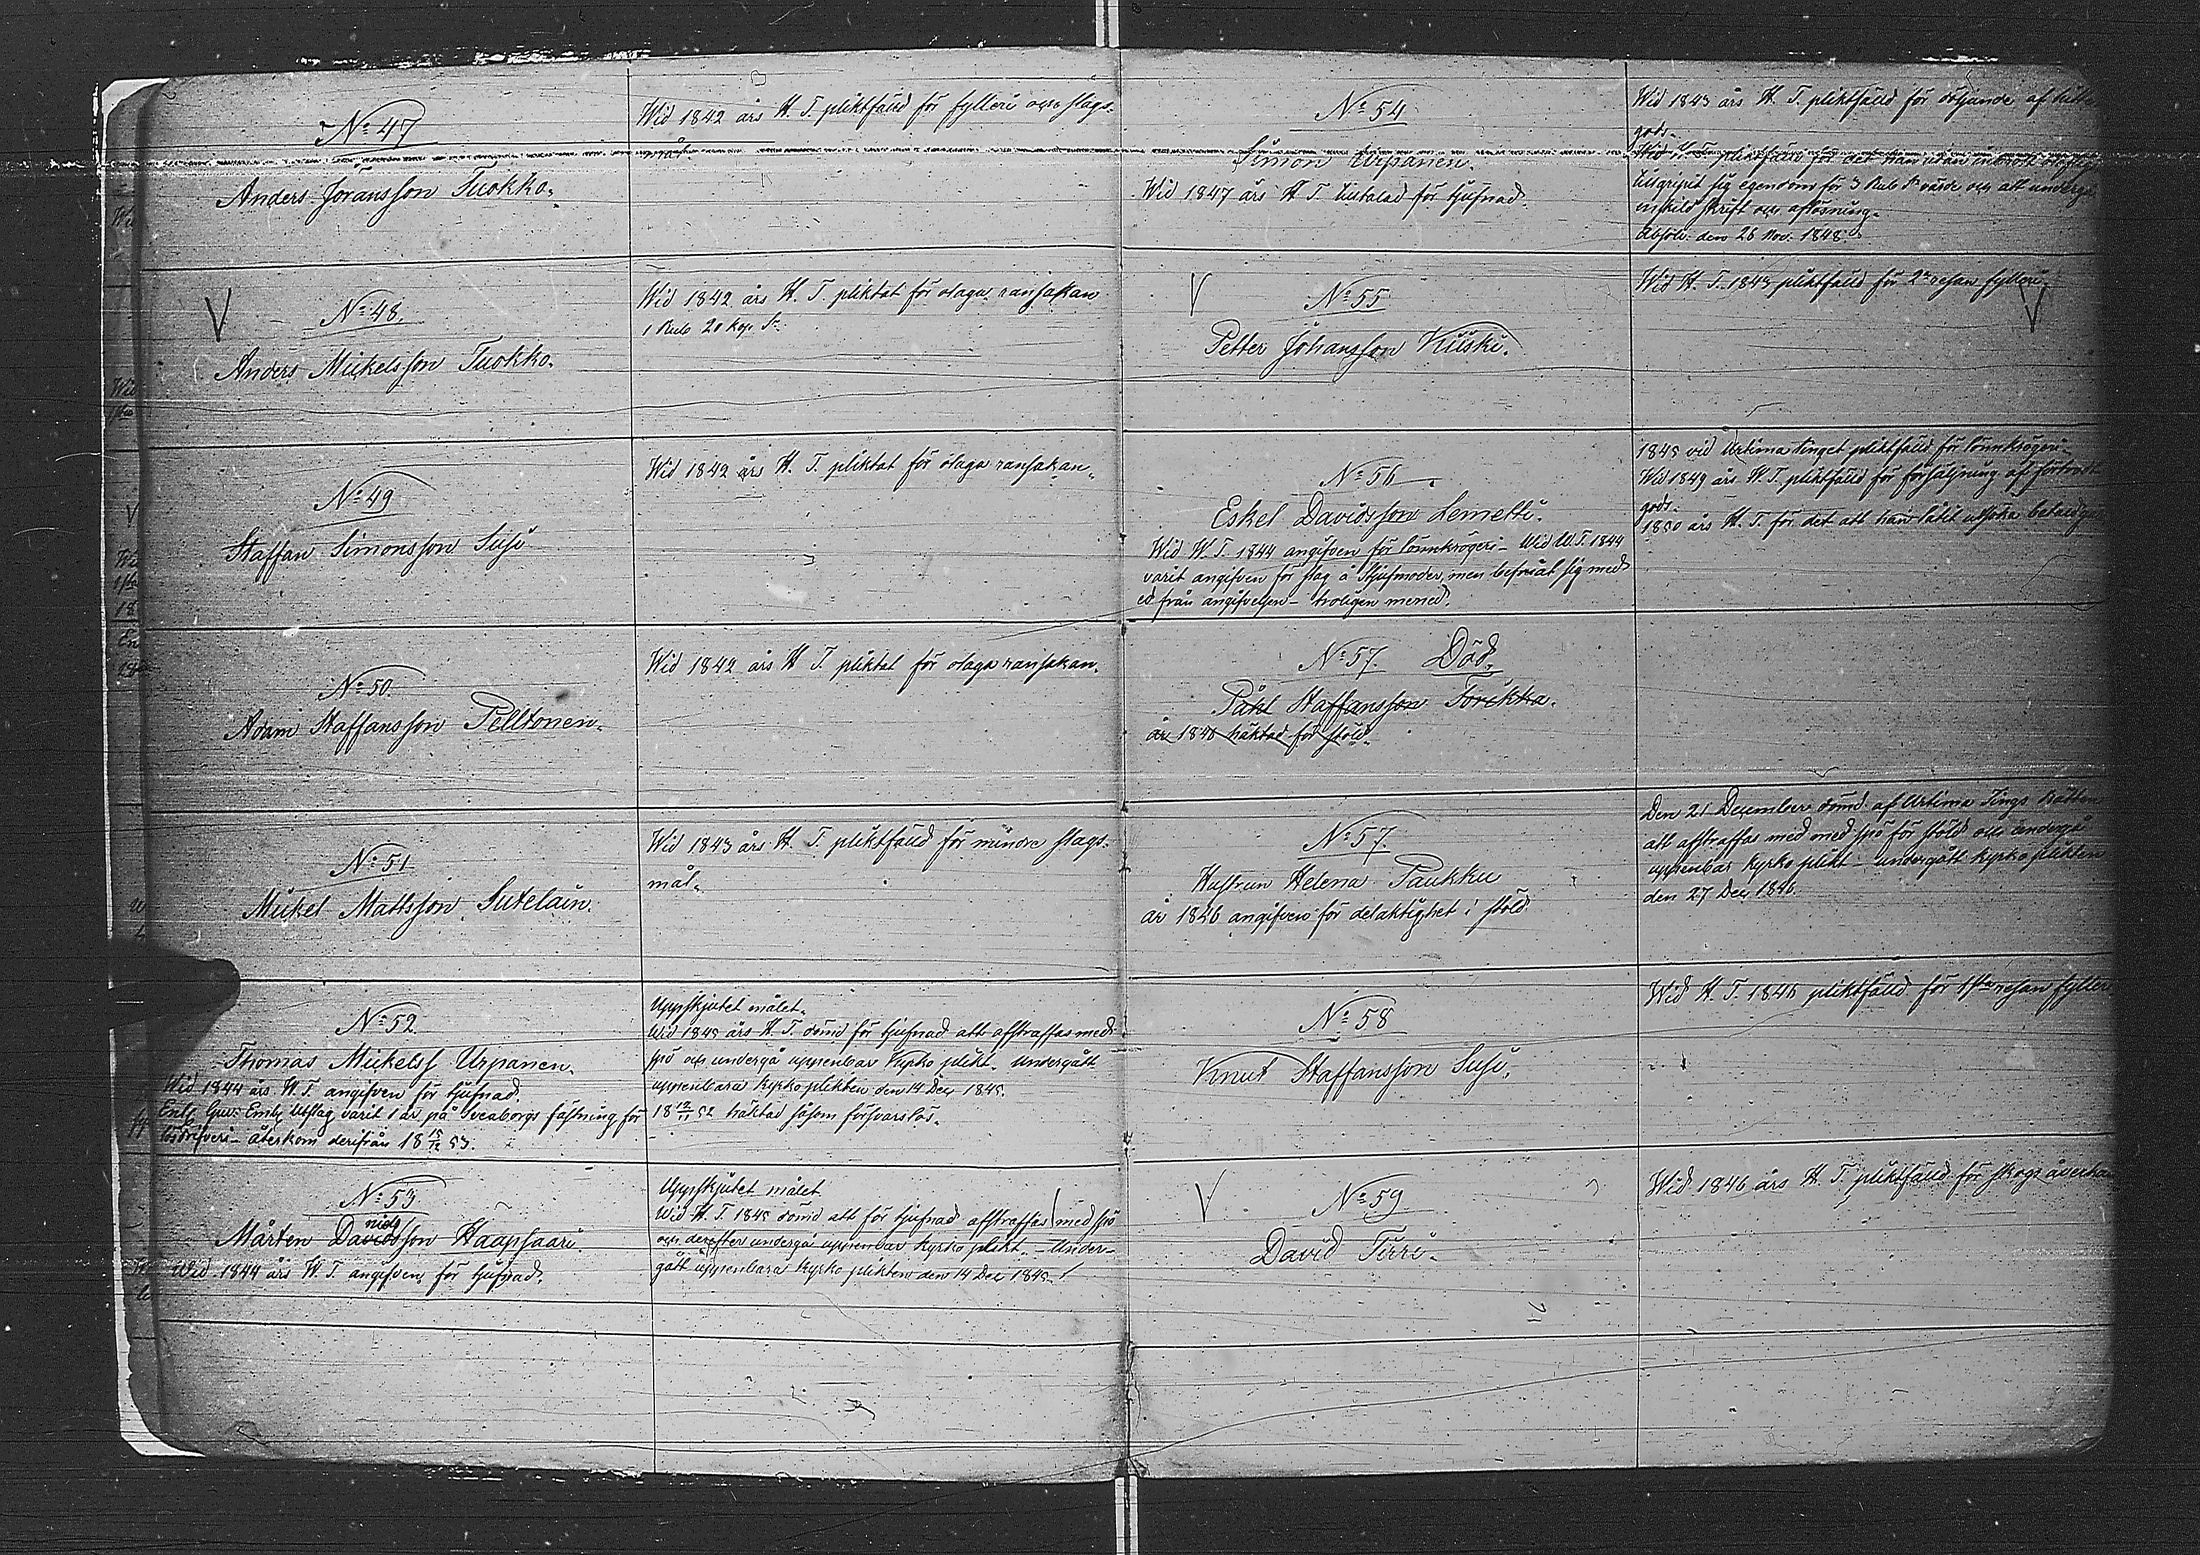 No 47
Anders Jöransson Tuokko.
Wid 1842 års H. T. pliktfälld för fylleri och slags-
mål.
No 48.
Anders Mickelsson Tuokko.
Wid 1842 års H. T. pliktat för olaga ransakan
1 Rub 20 kop. Sr.
No 49
Staffan Simonsson Susi
Wid 1842 års H. T. pliktat för olaga ransakan.
No 50
Adam Staffansson Pelltonen.
Wid 1842 års H T. pliktat för olaga ransakan.
No 51
Mickel Mattsson Sutelain.
Wid 1843 års H. T. pliktfälld för mindre slags-
mål.
No 52
Thomas Mickelss Urpanen.
Wid 1844 års W. T. angifven för tjufnad.
Enl. Guv. Embs Utslag varit 1 år på Sveaborgs fästning för
återkom derifrån 18 15/12 53.
Uppskjutet målet.
Wid 1845 års H. T. dömd för tjufnad att afstraffas med
spö och undergå uppenbar Kyrko plikt. Undergått
uppenbara kyrko plikten den 14 Dec 1845.
18 19/11 52 häktad såsom försvarslös.
No 53
Mårten Davidsson Haapsaari.
nids
Wid 1844 års W. T. angifven för tjufnad.
Uppskjutet målet
Wid H. T. 1845 dömd att för tjufnad afstraffas med spö
och derefter undergå uppenbar kyrko plikt. - Under-
gått uppenbara kyrko plikten den 14 Dec 1845.
No 54
Simon Urpanen.
Wid 1847 års H T. tilltalad för tjufnad.
Wid 1843 års H. T. pliktfälld för döljande af
gods.
Wid H. T. pliktfälld för det han utan
sig egendom för 3 Rub Sr värde och att undergå
enskild skrift och aflösning.
Absolv. den 26 Nov. 1848
No 55
Petter Johansson Kiiski.
Wid H. T. 1843 pliktfälld för 2a resan fylleri.
No 56
Eskel Davidsson Lemetti.
Wid W. T. 1844 angifven för lönnkrögeri - Wid W. T. 1844
varit angifven för slag å Styfmoder, men befriat sig med
ed från angifvelsen - troligen mened.
1845 vid Urtima tinget pliktfälld för lönnkrögeri.
Wid 1849 års H. T. pliktfälld för försäljning af
gods.
1850 års H. T. för det att han låtit utsöka
No 57. Död.
Påhl Staffansson Torikka.
år 1846 häktad för stöld.
No 57.
Hustrun Helena Paukku
år 1846 angifven för delaktighet i stöld
Den 21 December dömd af Urtima Tings Rätten
att afstraffas med med spö för stöld och undergå
uppenbar kyrko plikt - undergått kyrko plikten
den 27 Dec 1846
No 58
Knut Staffansson Susi.
Wid H. T. 1846 pliktfälld för 1sta resan fylleri
No 59.
David Tiiri.
Wid 1846 års H. T. pliktfälld för skogs